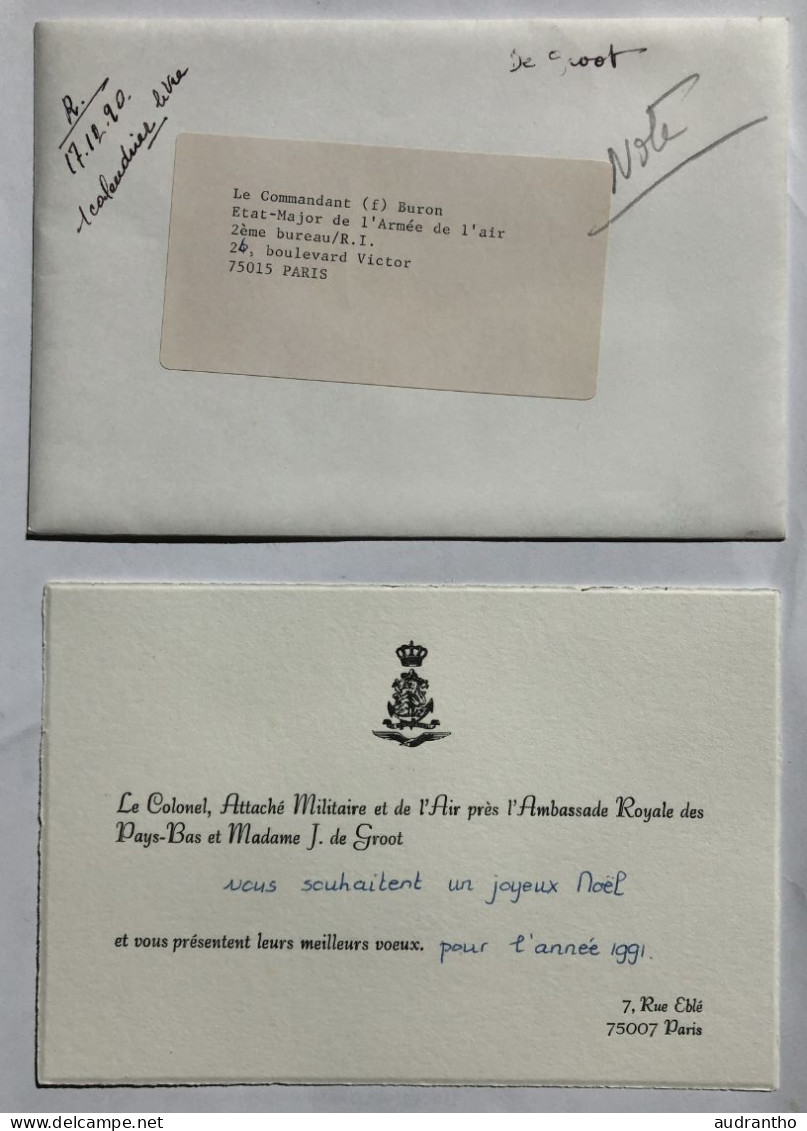 R.
17.12.90.
1 calendrier livre
De Groot
Note
Le Commandant (f) Buron
Etat-Major de l'Armée de l'air
2ème bureau/R.I.
26, boulevard Victor
75015 PARIS
Le Colonel, Attaché Militaire et de l'Air près l'Ambassade Royale des
Pays-Bas et Madame J. de Groot
vous souhaitent un joyeux Noël
et vous présentent leurs meilleurs voeux. pour l'année 1991.
7, Rue Eblé
75007 Paris
audrantho
delcampe.net